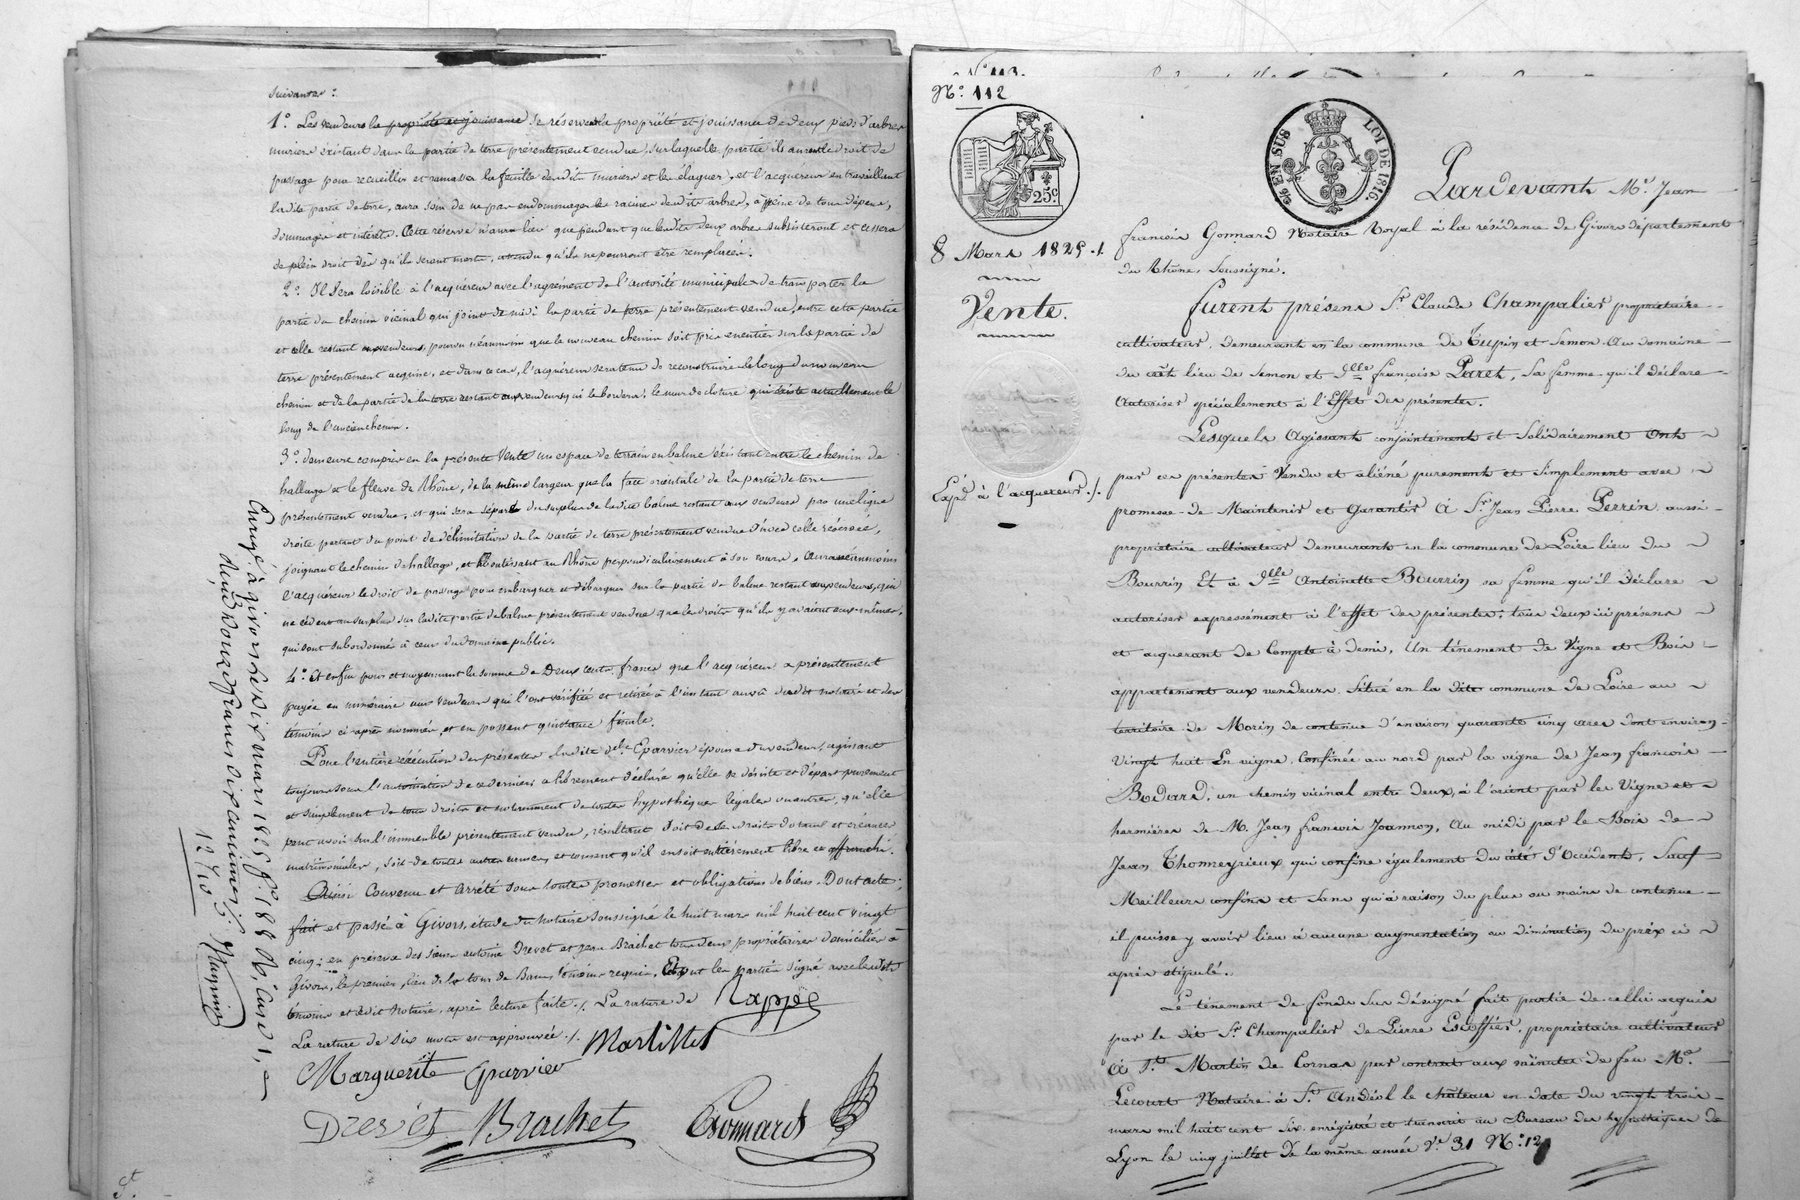 suivantes :
1° Les vendeurs la propriété et jouissance se réservent la propriété et jouissance de deux pieds d'arbres
muriers existant dans la partie de terre présentement vendue, sur laquelle partie ils auront le droit de
passage pour recueillir et ramasser la feuille desdits muriers et les élaguer, et l'acquéreur en travaillant
ladite partie de terre, aura soin de ne pas endommager les racines desdits arbres, à peine de tous dépens,
dommages et intérêts. Cette réserve n'aura lieu que pendant que lesdits deux arbres subsisteront et cessera
de plein droit dès qu'ils seront morts, attendu qu'ils ne pourront être remplacés.
2° Il sera loisible à l'acquéreur avec l'agrément de l'autorité municipale de transporter la
partie du chemin vicinal qui joint de midi la partie de terre présentement vendue, entre cette partie
et celle restant aux vendeurs, pourvu néanmoins que le nouveau chemin soit pris en entier sur la partie de
terre présentement acquise, et dans ce cas, l'acquéreur sera tenu de reconstruire le long du nouveau
chemin et de la partie de la terre restant aux vendeurs qui le bordera, le mur de cloture qui existe actuellement le
long de l'ancien chemin.
3° demeure compris en la présente vente un espace de terrain en balme existant entre le chemin de
hallage et le fleuve du Rhône, de la même largeur que la face orientale de la partie de terre
présentement vendue, et qui sera séparé du surplus de ladite balme restant aux vendeurs par une ligne
droite partant du point de délimitation de la partie de terre présentement vendue d'avec celle réservée,
joignant le chemin de hallage, et aboutissant au Rhône perpendiculairement à son cours. Aura néanmoins
l'acquéreur le droit de passage pour embarquer et débarquer sur la partie de balme restant aux vendeurs, qui
ne cèdent au surplus sur ladite partie de balme présentement vendue que les droits qu'ils y avaient eux-mêmes,
qui sont subordonnés à ceux du domaine public.
4° Et enfin pour et moyennant la somme de Deux cents francs que l'acquéreur a présentement
payée en numéraire aux vendeurs qui l'ont vérifiée et retirée à l'instant au vû dudit notaire et des
témoins ci-après nommés, et en passent quittance finale.
Pour l'entière exécution des présentes ladite delle Eparvier épouse du vendeur, agissant
toujours sous l'autorisation de ce dernier a librement déclaré qu'elle se désiste et départ purement
et simplement de tous droits et notamment de toutes hypothèques légales ou autres, qu'elle
peut avoir sur l'immeuble présentement vendu, résultant soit de ses droits dotaux et créances
matrimoniales, soit de toutes autres causes, et consent qu'il en soit entièrement libre et affranchi.
Ainsi convenu et arrêté sous toutes promesses et obligations de biens. Dont acte ;
fait et passé à Givors, étude du notaire soussigné le huit mars mil huit cent vingt
cinq ; en présence des sieurs antoine Drevet et jean Brachet tous deux propriétaires domiciliés à
Givors, le premier, lieu de la tour de Bans, témoins requis. Et ont les parties signé avec lesdits
témoins et ledit notaire, après lecture faite ./. La rature de
La rature de six mots est approuvée ./.
Rappée
Martillet
Marguerite Eparvier
Drevet Brachet Gonnard
Enregé à givors le dix mars 1825 fo. 188 Ro. Case 1, a
Reçu douze francs dix centimes ./.
12f 10
N° 113.
N° 112
25c
96 EN SUS LOI DE 1816.
8 Mars 1825 ./.
Vente.
Expd à l'acquereur ./.
Pardevant Me. Jean
françois Gonnard Notaire Royal à la résidence de Givors département
du Rhône, Soussigné.
furent présens Sr. Claude Champalier propriétaire
cultivateur, demeurant en la commune de Tupin et Semon au domaine
du dit lieu de Semon et Delle françoise Paret, sa femme qu'il déclare
autoriser spécialement à l'Effet des présentes.
Lesquels agissant conjointement et Solidairement ont
par ces présentes Vendu et aliéné purement et simplement avec
promesse de Maintenir et Garantir à Sr. Jean Pierre Perrin aussi
propriétaire cultivateur demeurant en la commune de Loire lieu du
Bourrin et à Delle Antoinette Bourrin sa femme qu'il déclare
autoriser expressément à l'effet des présentes, tous deux ici présens
et acquerant de Compte à demi, Un ténement de Vigne et Bois
appartenant aux vendeurs Situé en la dite commune de Loire au
territoire de Morin de contenue d'environ quarante cinq ares dont environ
vingt huit En vigne, Confinée au nord par la vigne de Jean françois
Bodard, un chemin vicinal entre deux, à l'orient par les Vignes et
hermières de M. Jean françois Joannon, au midi par le Bois de
Jean Thomeyrieux qui confine également du côté d'Occident, Sauf
Meilleurs confins et Sans qu'à raison du plus au moins de contenue
il puisse y avoir lieu à aucune augmentation ou diminution du prix ci
après stipulé.
Le ténement de fonds Sus désigné fait partie de celui acquis
par le dit Sr. Champalier de Pierre Escoffier, propriétaire cultivateur
à St. Martin de Cornas par contrat aux minutes de feu Me.
Lecourt Notaire à St. Andéol le château en date du vingt trois
mars mil huit cent six enregistré et transcrit au Bureau des hypothèques de
Lyon le cinq juillet de la même année Ve. 31 N° 12